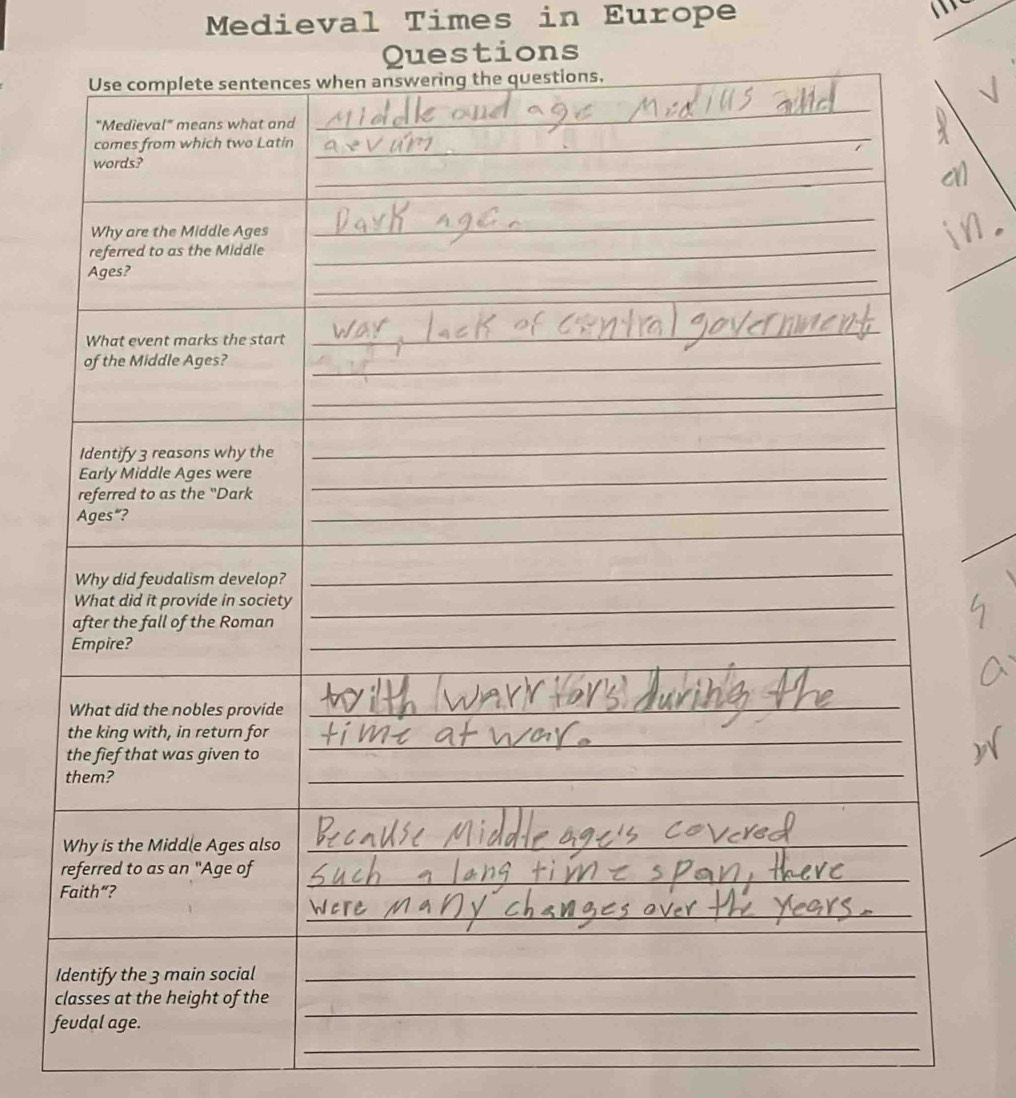 Medieval Times in Europe
Questions
Use complete sentences when answering the questions.
"Medieval" means what and
comes from which two Latin
words?
Middle and age Medius and
aevum.
Why are the Middle Ages
referred to as the Middle
Ages?
Dark ages
What event marks the start
of the Middle Ages?
war, lack of central government
Identify 3 reasons why the
Early Middle Ages were
referred to as the "Dark
Ages"?
Why did feudalism develop?
What did it provide in society
after the fall of the Roman
Empire?
What did the nobles provide
the king with, in return for
the fief that was given to
them?
with warriors during the
time at war.
Why is the Middle Ages also
referred to as an "Age of
Faith"?
Because Middle age's covered
such a long time span, there
were many changes over the years.
Identify the 3 main social
classes at the height of the
feudal age.
en
in.